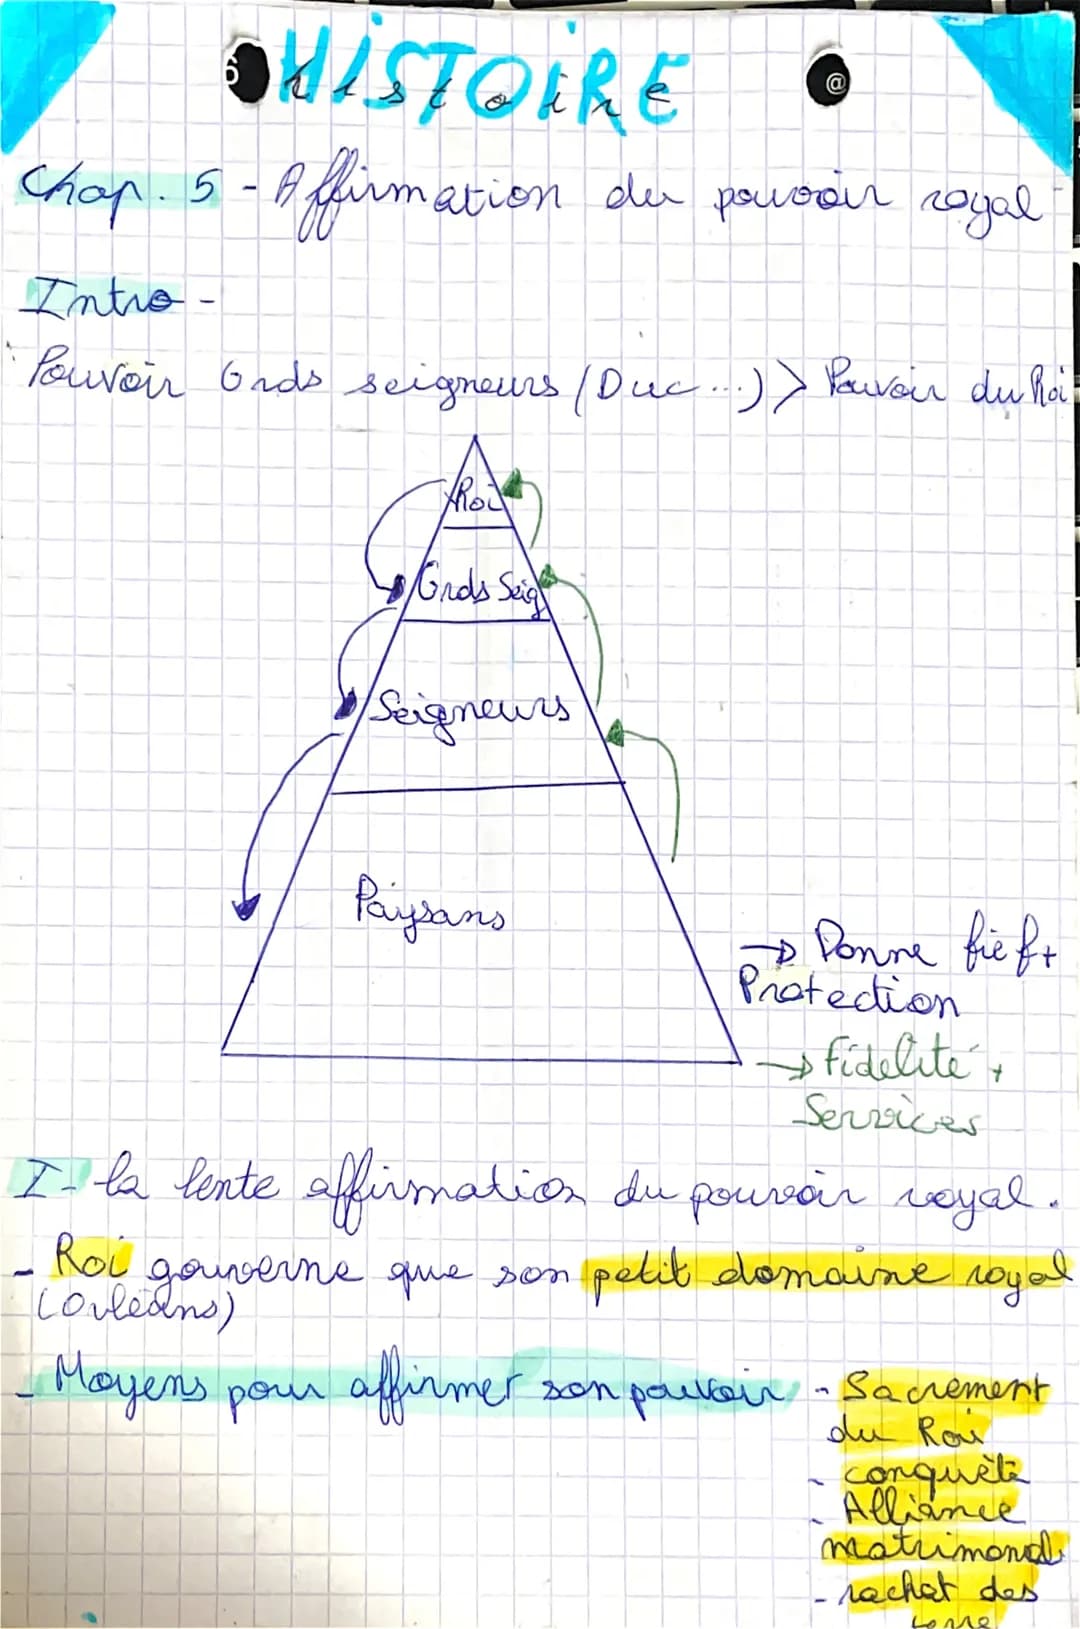 HISTOIRE
histoire
@
Chap. 5 - Affirmation du pouvoir royal
Intro -
Pouvoir Grds seigneurs (Duc...) > Pouvoir du Roi
Roi
Grds Seig
Seigneurs
Paysans
→ Donne fief +
Protection
→ Fidelité +
Services
I- la lente affirmation du pouvoir royal.
- Roi gouverne que son petit domaine royal
(Orléans)
- Moyens pour affirmer son pouvoir
- Sacrement
du Roi
- conquête
- Alliance
matrimonial
- rachat des
terre